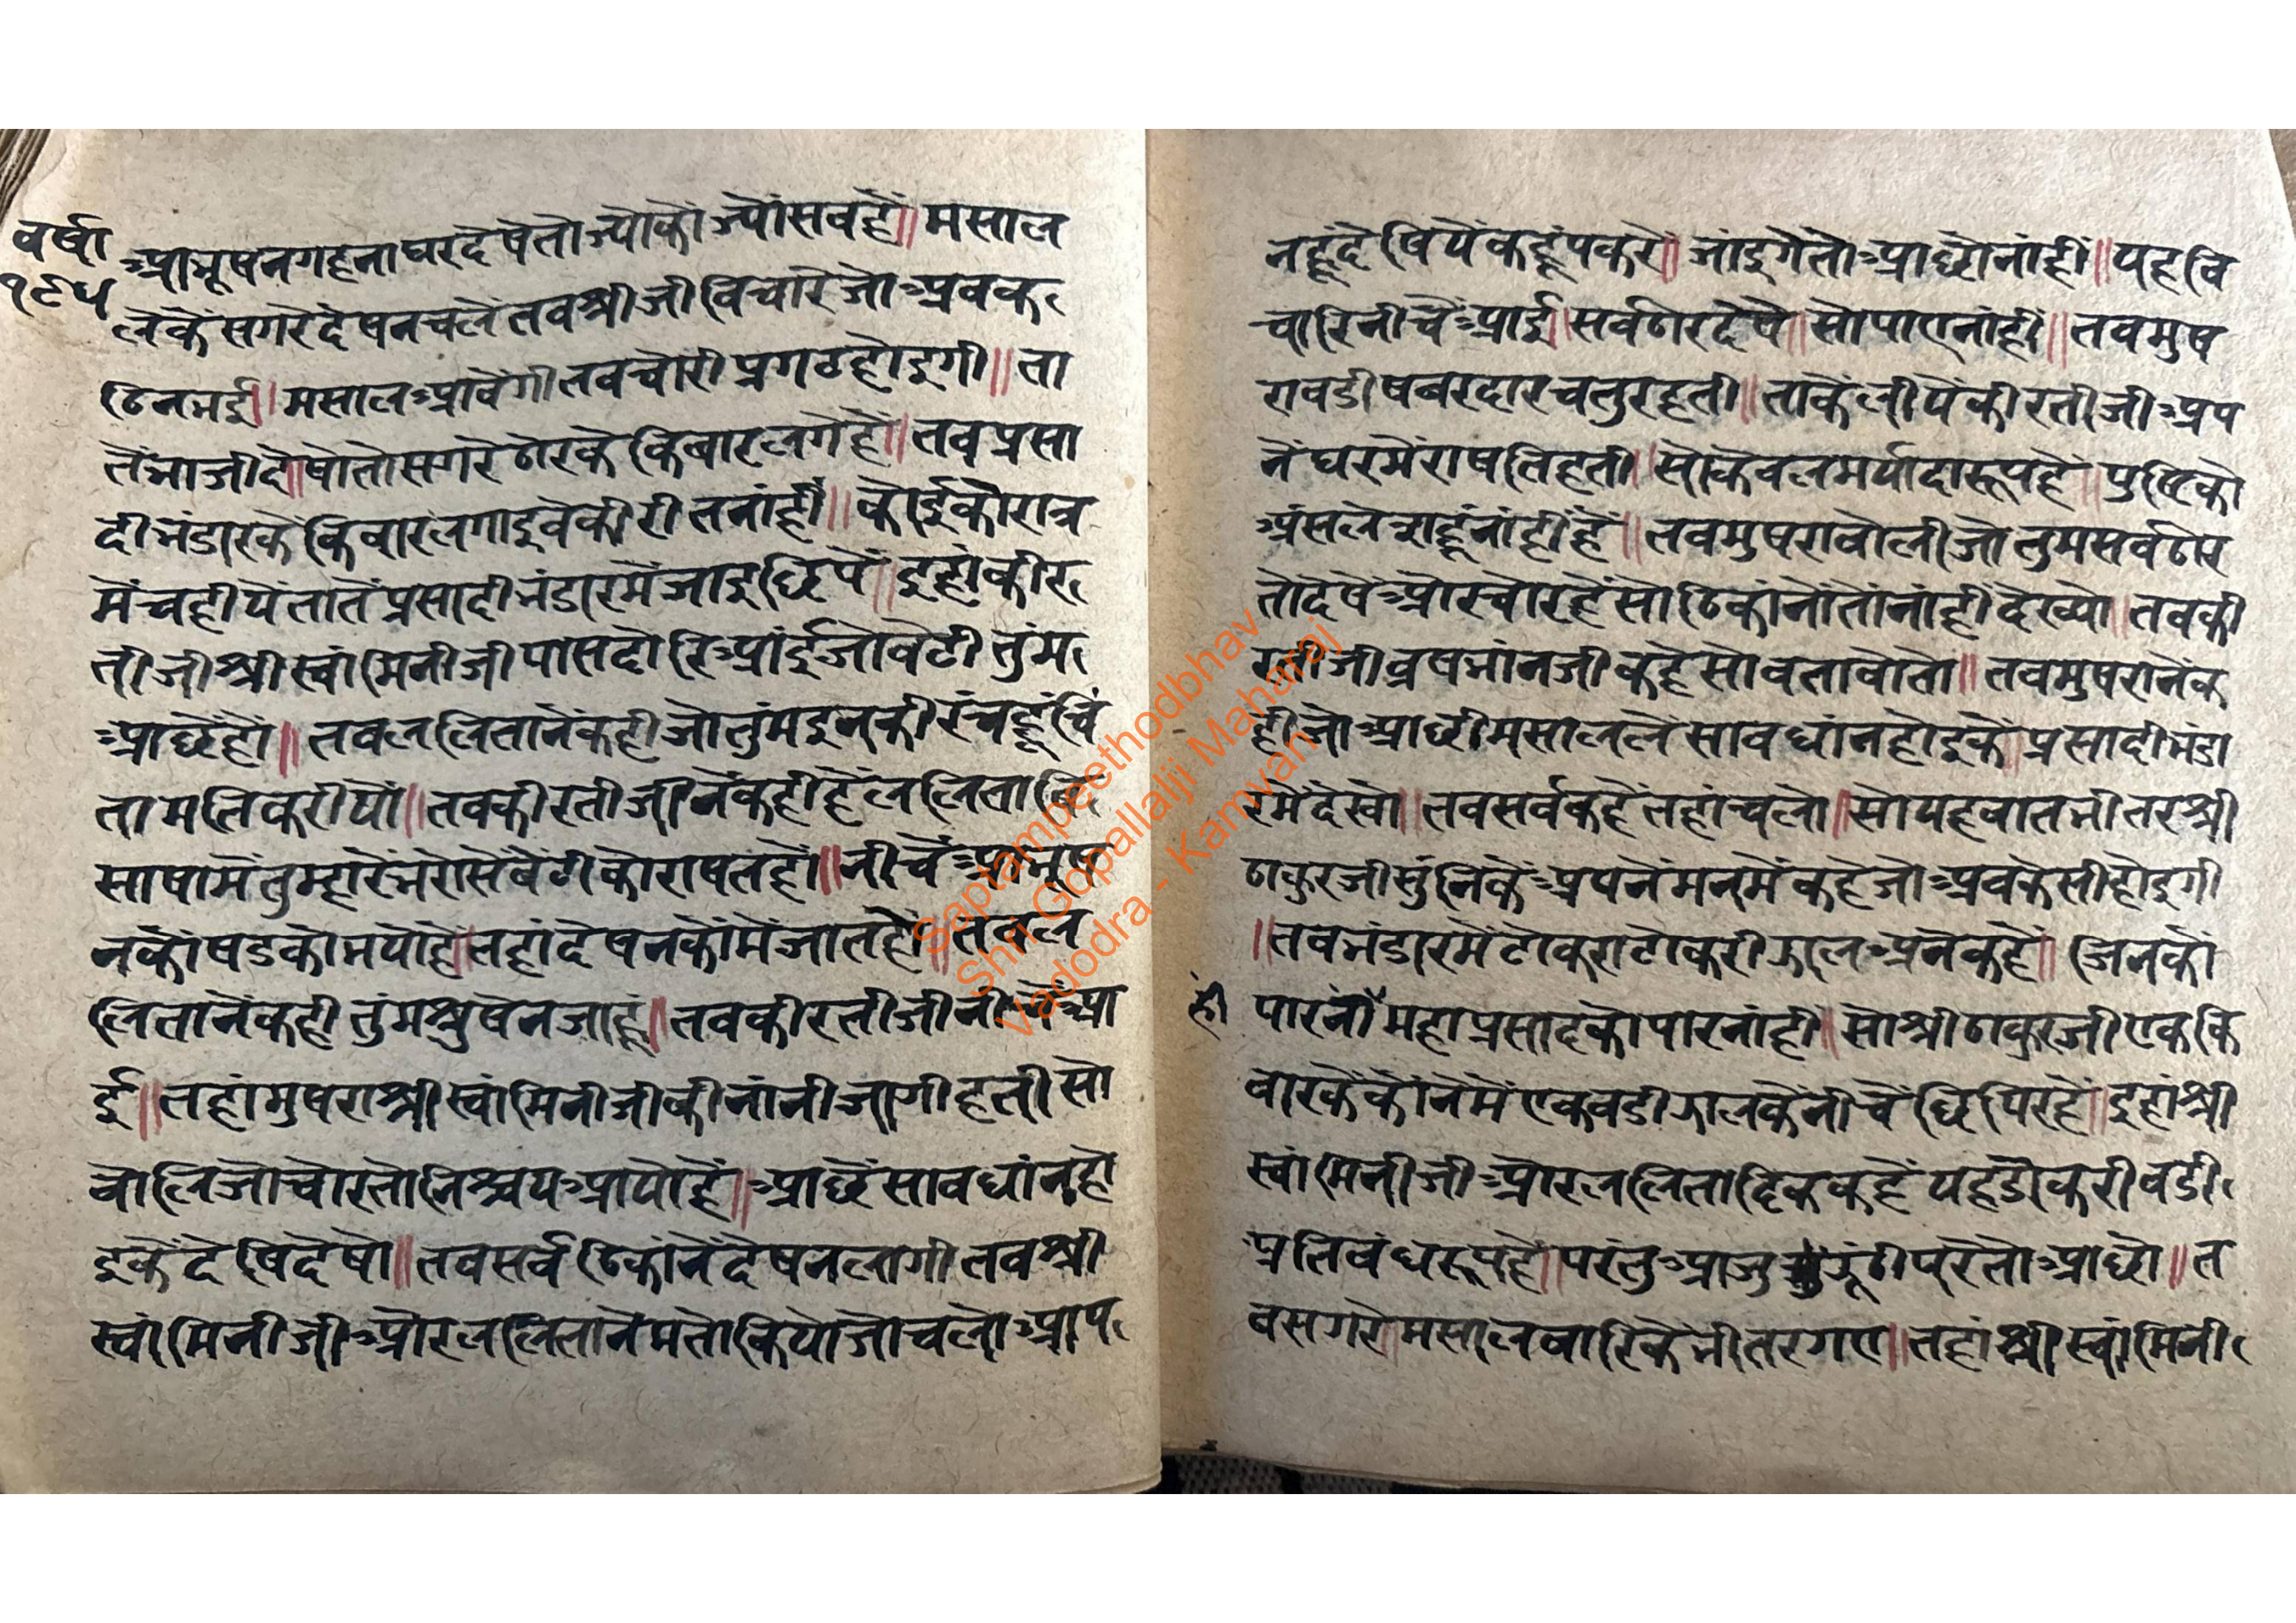 वर्षा
१९५
आभूषनगहनाघरदेषेतोज्योकोंज्योंसबहै॥मसाल
लेकेंसगरेदेषनचलेतबश्रीजीविचारेजोअबक
ठिनभई॥मसालआवेंगीतबचोरीप्रगटहोइगी॥ता
तेंभाजीदे॥षोतोसगरेठोरकेकिबारलगेहें॥तबप्रसा
दीभंडारकेकिवारलगाइवेकीरीतनांहीं॥कोईकोरात्र
मेंचहीयेंतातेंप्रसादीभंडारमेंजाइछिपे॥इहांकीर
तीजीश्रीस्वांमिनीजीपासदोरिआंईजोबेटीतुंम
आछेहों॥तबललितानेंकहीजोतुंमइनकीरंचहूंचिं
तामतिकरीयों॥तबकीरतीजीनेंकहीहेंललितावि
साषामेंतुम्हारेंभरोसेंबेटीकोराषतहों॥नीचेंआभूष
नकोंषडकोभयोहे॥तहांदेषनकोंमेंजातहों॥तबल
लितानेंकहीतुंमश्रुषेनजाहू॥तबकीरतीजीनीचेंआ
ई॥तहांमुषराश्रीस्वांमिनीजीकीनांनीजागीहतीसो
बोलिजोचोरतोनिश्चयआयोहें॥आछेंसावधांनहो
इकेंदेषिदेषो॥तबसर्वठिकांनेंदेषनलागीतबश्री
स्वांमिनीजीओरललितानेंमतोकियोजोचलोआप
नहूंदेषियेंकहूंपकरे॥जांइगेतोआछोनांहीं॥यहवि
चारिनीचेंआई॥सर्वठोरदेषे॥सोपाएनांहीं॥तबमुष
राबडीषबरदारचतुरहती॥ताकेंलीयेंकीरतीजीअप
नेंघरमेंराषतिहती॥सोकेवलमर्यादारूपहे॥पुष्टिको
अंसलेसहूंनांहींहें॥तबमुषराबोलीजोतुमसर्वठोर
तोदेषेंओरचोरहेंसोठिकांनोंतोंनांहींदेख्यो॥तबकी
रतीजीव्रषभांनजीकहेसोबतावोतो॥तबमुषरानेंक
हीजोआछीमसाललेसावधांनहोइकें॥प्रसादीभंडा
रमेंदेखो॥तबसर्वकहेंतहांचलो॥सोयहबातभीतरश्री
ठाकुरजीसुंनिकेंअपनेंमनमेंकहेजोअबकेसीहोइगी
॥तबभंडारमेंटोकराटोकरीझालअनेकहें॥जिनकों
हीं पारनोंमहाप्रसादकोपारनांहीं॥सोश्रीठाकुरजीएककि
वारकेंकोंनेमेंएकबडीझालकेंनीचेंछिपिरहें॥इहांश्री
स्वांमिनीजीओरललितादिककहेंयहडोकरीबडी
प्रतिबंधरूपहें॥परंतुआजुझूंठीपरेतोआछो॥त
बसगरे॥मसालबारिकेंभीतरगए॥तहांश्रीस्वांमिनी
Saptrampeethodbhav
Shri Gopallalji Maharaj
Vadodra - Kamvan